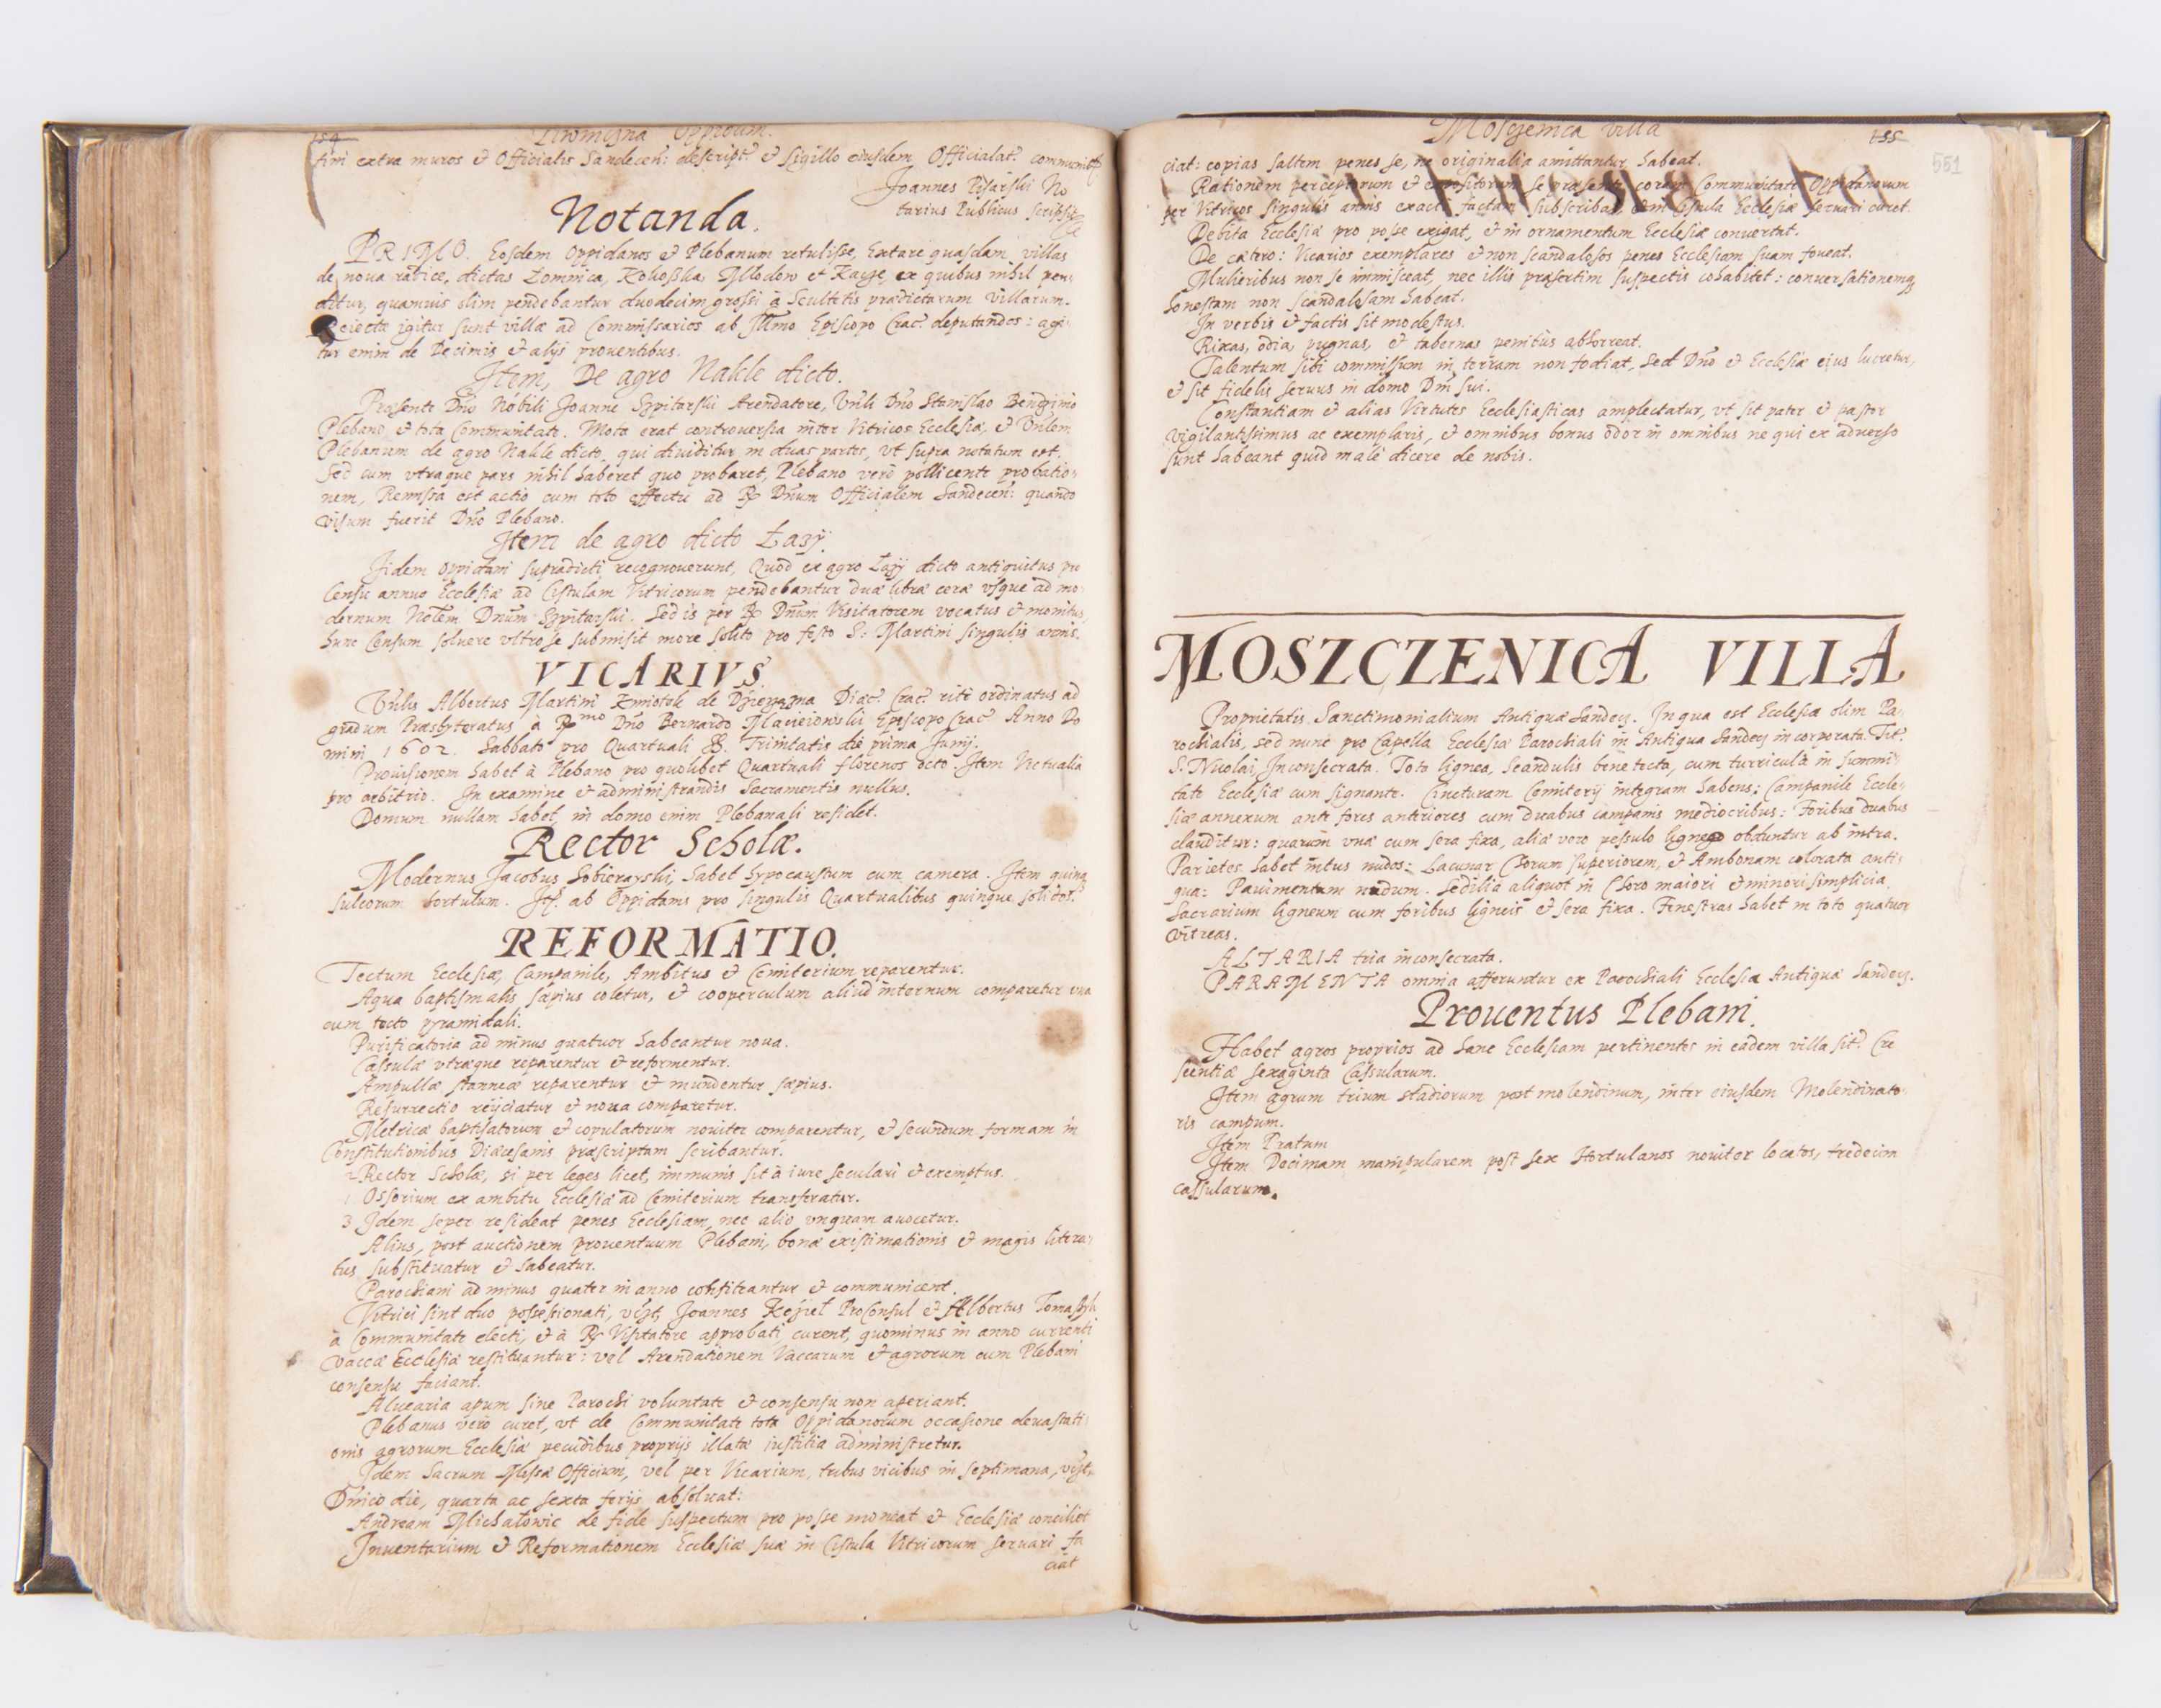 154
Oppidum.
tim extra muros & Officialis Sandecen: descript: & sigillo eiusdem Officialat:
Joannes Pisarski No
tarius Publicus scripsit
Notanda.
PRIMO. Eosdem Oppidanos & Plebanum retulisse, Extare quasdam villas
de noua radice, dictas Łomnica, Kokoszka, Młodow et ex quibus nihil pen:
ditur, quamuis olim pendebantur duodecim grossi à Scultetis prædictarum villarum.
Reiectæ igitur sunt villæ ad Commissarios ab Illmo Episcopo Crac: deputandos: agi:
tur enim de Decimis & alijs prouentibus.
Item, De agro Nakle dicto.
Præsente Dno Nobili Joanne Szpitarski Arendatore, Vnli Dno Stanislao
Plebano, & tota Communitate. Mota erat controuersia inter Vitricos Ecclesiæ, & Vnlem
Plebanum de agro Nakle dicto, qui diuiditur in duas partes, vt supra notatum est.
Sed cum vtraque pars nihil haberet quo probaret, Plebano verò pollicente probatio:
nem, Remissa est actio cum toto effectu ad R. Dnum Officialem Sandecen: quando
visum fuerit Dno Plebano.
Item de agro dicto Łazy.
Jidem oppidani supradicti recognouerunt, Quod ex agro Łazy dicto antiquitus pro
Censu annuo Ecclesiæ ad Cistulam Vitricorum pendebantur duæ libræ ceræ vsque ad mo:
dernum Nobilem Dnum Szpitarski. Sed is per R. Dnum Visitatorem vocatus & monitus,
hunc Censum soluere vltro se submisit more solito pro festo S: Martini singulis annis.
VICARIVS
Vnlis Albertus Martini Kmiotek de Diæc: Crac: ritè ordinatus ad
gradum Præsbyteratus à Rmo Dno Bernardo Macieiowski Episcopo Crac: Anno Do
mini 1602. Sabbato pro Quartuali SS. Trinitatis die prima Junij.
Prouisionem habet à Plebano pro quolibet Quartuali florenos octo. Item Victualia
pro arbitrio. In examine & administrandis Sacramentis nullus.
Domum nullam habet, in domo enim Plebanali residet.
Rector Scholæ.
Modernus Jacobus Sobierayski, habet hypocaustum cum camera. Item quinq
sulcorum hortulum. ab Oppidanis pro singulis Quartualibus quinque solidos.
REFORMATIO.
Tectum Ecclesiæ, Campanile, Ambitus & Cemiterium reparentur.
Aqua baptismalis sæpius coletur, & cooperculum aliud internum comparetur vna
cum tecto pyramidali.
Purificatoria ad minus quatuor habeantur noua.
Casulæ vtræque reparentur & reformentur.
Ampullæ stanneæ reparentur & mundentur sæpius.
Resurrectio reijciatur & noua comparetur.
Metricæ baptisatorum & copulatorum nouiter comparentur, & secundum formam in
Constitutionibus Diæcesanis præscriptam scribantur.
2 Rector Scholæ, si per leges licet, immunis sit à iure seculari & exemptus.
1 Ossorium ex ambitu Ecclesiæ ad Cemiterium transferatur.
3 Idem seper resideat penes Ecclesiam, nec alio vnquam auocetur.
Alius, post auctionem prouentuum Plebani, bonæ existimationis & magis litera:
tus substituatur & habeatur.
Parochiani ad minus quater in anno confiteantur & communicent.
Vitrici sint duo possessionati, Joannes ProConsul & Albertus
à Communitate electi, & à R. Visitatore approbati curent, quominus in anno currenti
vaccæ Ecclesiæ restituantur: vel Arendationem Vaccarum & agrorum cum Plebani
consensu faciant.
Aluearia apum sine Parochi voluntate & consensu non aperiant.
Plebanus verò curet, vt de Communitate tota Oppidanorum occasione deuastati:
onis agrorum Ecclesiæ pecudibus proprijs illata iustitia administretur.
Idem Sacrum Missæ Officium, vel per Vicarium, tribus vicibus in septimana,
Dnico die, quarta ac sexta ferijs absoluat:
Andream Michałowic de fide suspectum pro posse moneat & Ecclesiæ conciliet
Inuentarium & Reformationem Ecclesiæ suæ in Cistula Vitricorum seruari fa
ciat
villa
155
551
ciat: copias saltem penes se, ne originalia amittantur habeat.
Rationem perceptorum & expositorum se præsente coram Communitate Oppidanorum
per Vitricos singulis annis exactè factam subscribat, & in Cistula Ecclesiæ seruari curet.
Debita Ecclesiæ pro posse exigat, & in ornamentum Ecclesiæ conuertat.
De cætero: Vicarios exemplares & non scandalosos penes Ecclesiam suam foueat.
Mulieribus non se immisceat, nec illis præsertim suspectis cohabitet: conuersationemq
honestam non scandalosam habeat.
In verbis & factis sit modestus.
Rixas, odia, pugnas, & tabernas penitus abhorreat.
Talentum sibi commissum in terram non fodiat, sed Dno & Ecclesiæ eius lucretur,
& sit fidelis seruus in domo Dni sui.
Constantiam & alias Virtutes Ecclesiasticas amplectatur, vt sit pater & pastor
vigilantissimus ac exemplaris, & omnibus bonus odor in omnibus ne qui ex aduerso
sunt habeant quid malè dicere de nobis.
MOSZCZENICA VILLA
Proprietatis Sanctimonialium Antiquæ Sandecz. In qua est Ecclesia olim Pa:
rochialis, sed nunc pro Capella Ecclesiæ Parochiali in Antiqua Sandecz incorporata. Tit:
S. Nicolai, Inconsecrata. Tota lignea, Scandulis bene tecta, cum turricula in summi:
tate Ecclesiæ cum signante. Cincturam Cemiterij integram habens: Campanile Eccle:
siæ annexum ante fores anteriores cum duabus campanis mediocribus: Foribus duabus
clauditur: quarum vna cum sera fixa, aliæ vero pessulo ligneo obduntur ab intra.
Parietes habet intus nudos: Lacunar, Chorum superiorem, & Ambonam colorata anti:
qua: Pauimentum nudum. Sedilia aliquot in Choro maiori & minori simplicia.
Sacrarium ligneum cum foribus ligneis & sera fixa. Fenestras habet in toto quatuor
vitreas.
ALTARIA tria inconsecrata.
PARAMENTA omnia afferuntur ex Parochiali Ecclesia Antiquæ Sandecz.
Prouentus Plebani.
Habet agros proprios ad hanc Ecclesiam pertinentes in eadem villa sit: Cre
scentiæ sexaginta Cassularum.
Item agrum trium stadiorum post molendinum, inter eiusdem Molendinato:
ris campum.
Item Pratum
Item Decimam manipularem post sex Hortulanos nouiter locatos, tredecim
cassularum.